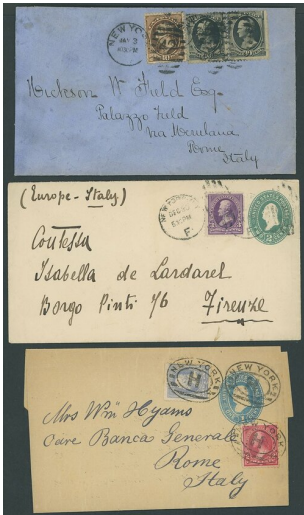 NEW YORK
Hickson W Field Esq
Palazzo Field
Via Merulana
Rome
Italy
(Europe - Italy)
Contessa
Isabella de Lardarel
Borgo Pinti 76
Firenze
F
NEW YORK
H
NEW YORK
Mrs Wm Hyams
Care Banca Generale
Rome
Italy